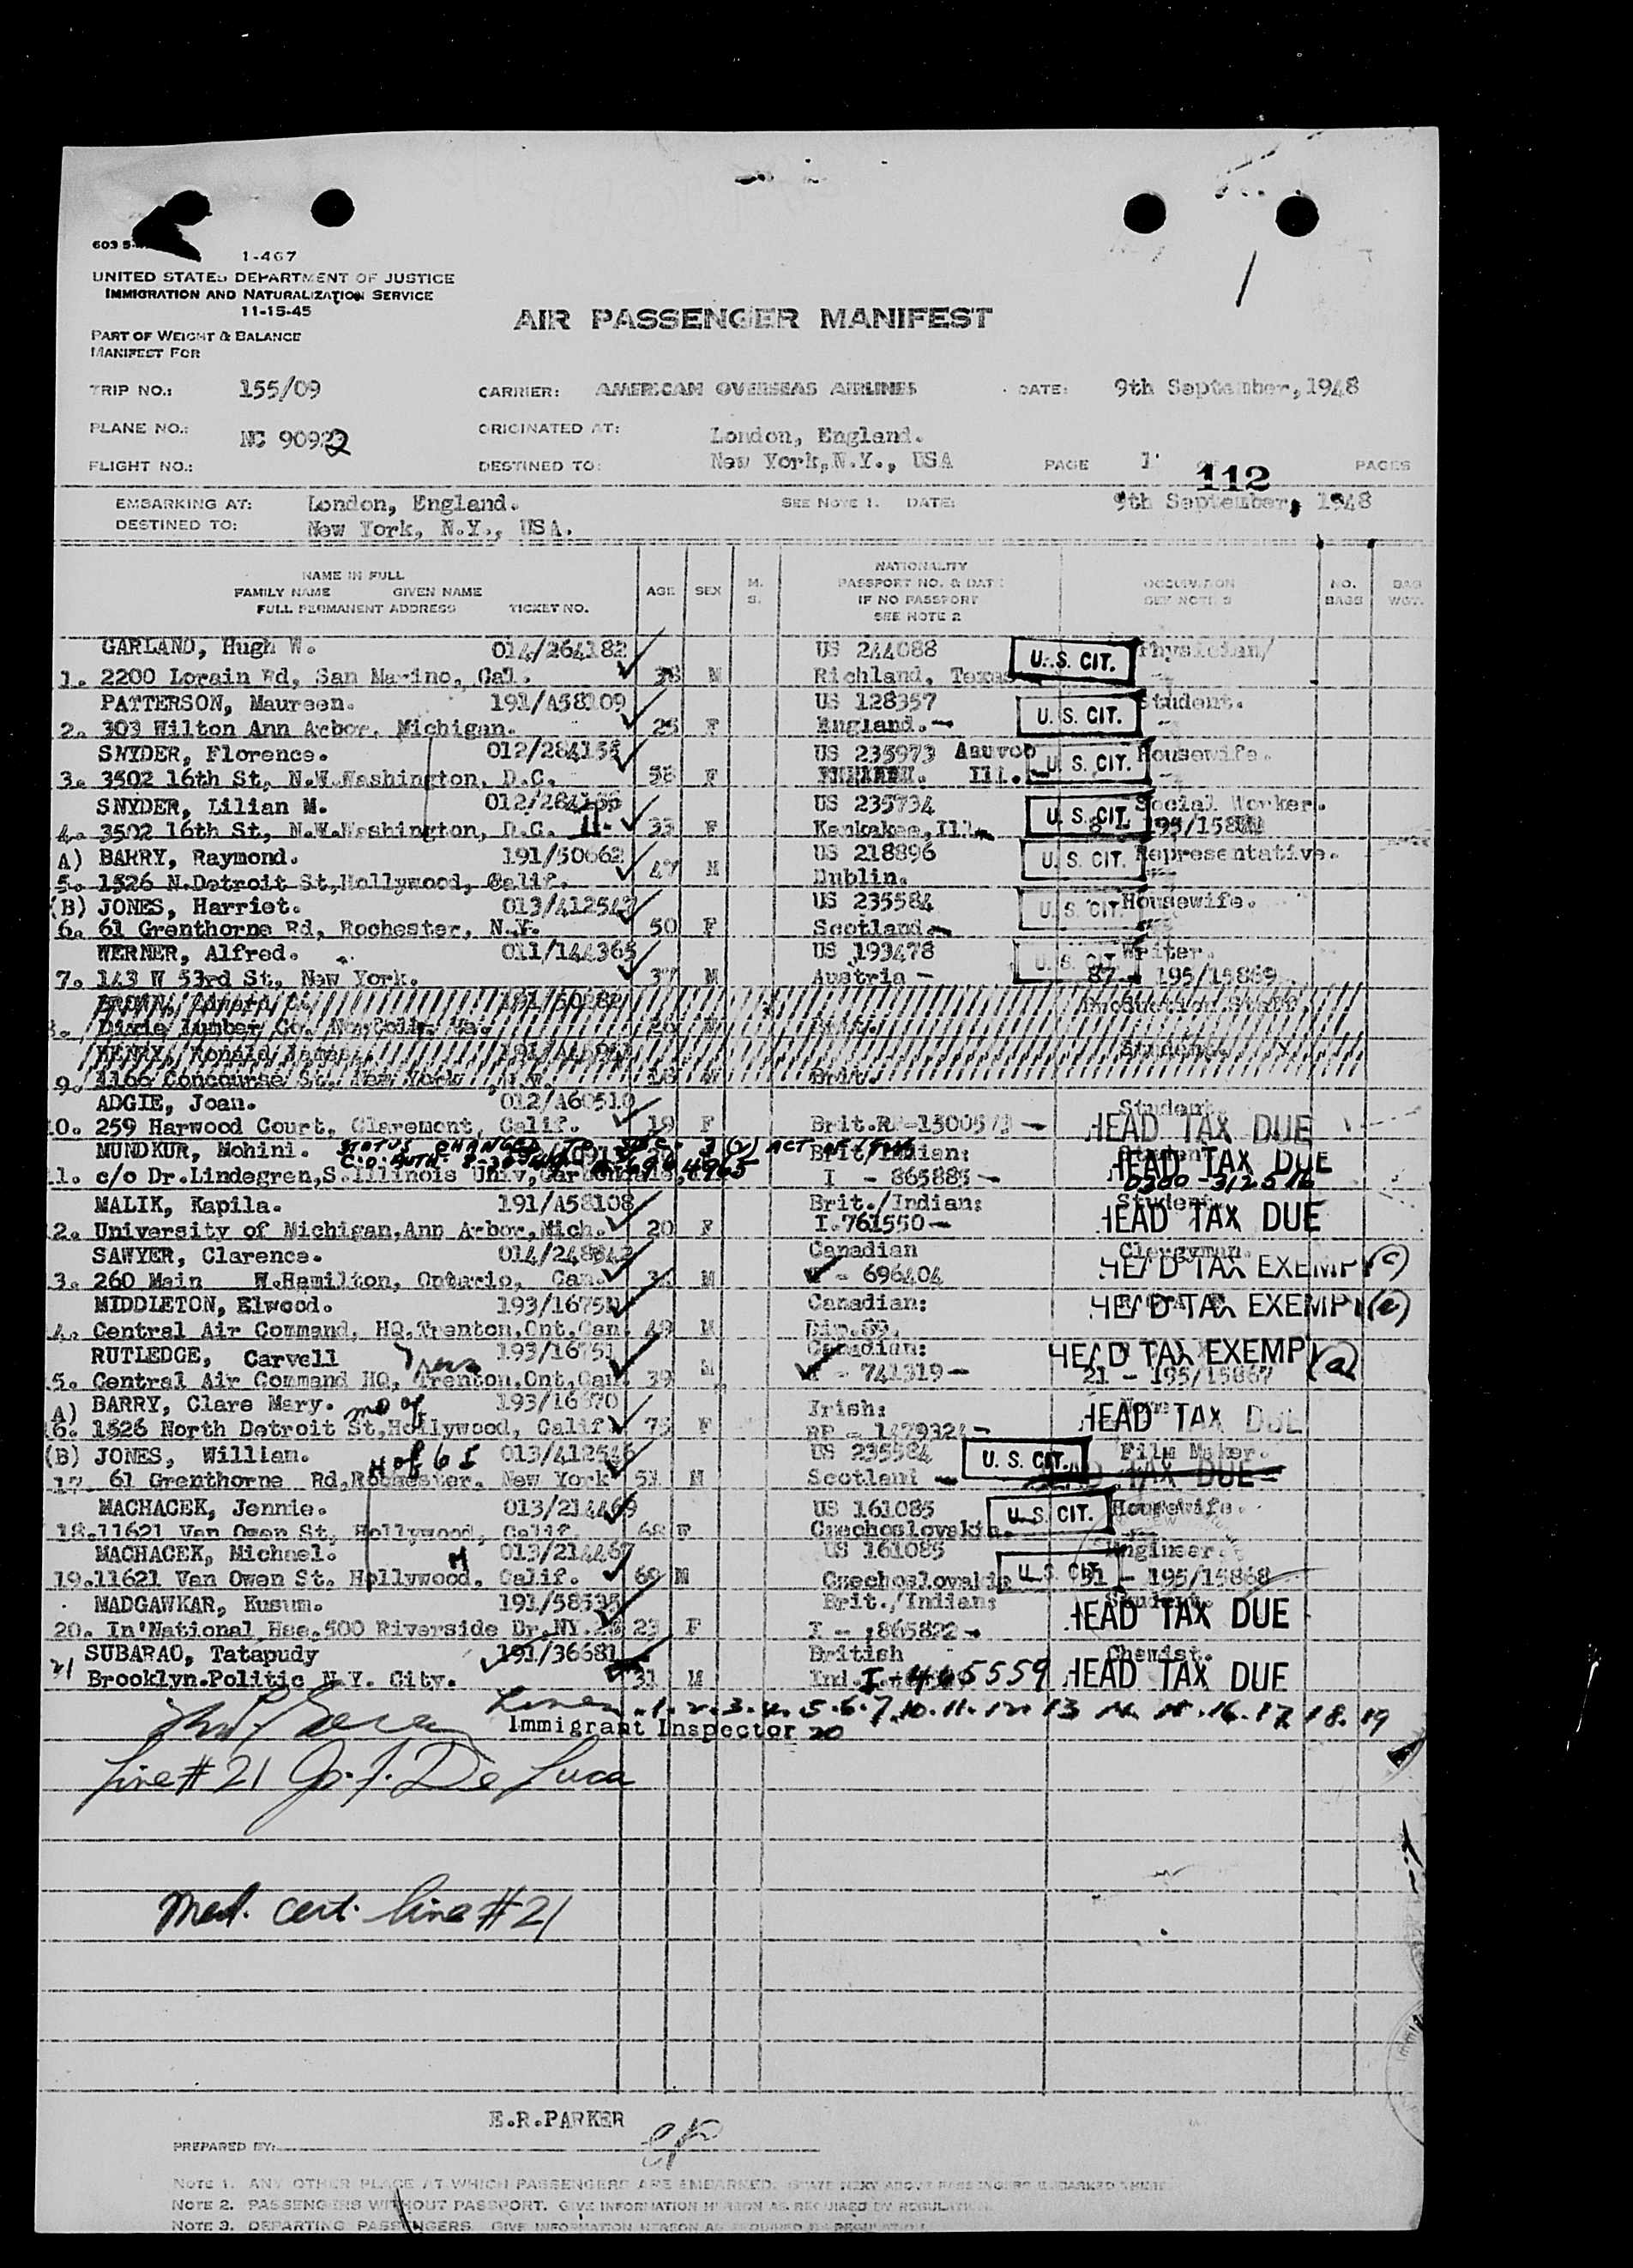 1-467
UNITED STATES DEPARTMENT OF JUSTICE
IMMIGRATION AND NATURALIZATION SERVICE
11-15-45
AIR PASSENGER MANIFEST
PART OF WEIGHT & BALANCE
MANIFEST FOR
TRIP NO.: 155/09 CARRIER: AMERICAN OVERSEAS AIRLINES DATE: 9th September, 1948
PLANE NO.: NC 90922 ORIGINATED AT: London, England.
FLIGHT NO.: DESTINED TO: New York, N.Y., USA PAGE 1 PAGES
112
EMBARKING AT: London, England. SEE NOTE 1. DATE: 9th September, 1948
DESTINED TO: New York, N.Y., USA.
NAME IN FULL
FAMILY NAME GIVEN NAME
FULL PERMANENT ADDRESS TICKET NO. AGE SEX M. S.
NATIONALITY
PASSPORT NO. & DATE
IF NO PASSPORT
SEE NOTE 2
OCCUPATION
SEE NOTE 3
NO. BAGS BAG WGT.
GARLAND, Hugh W. 014/264182 US 244088 U.S. CIT. Physician
1. 2200 Lorain Rd, San Marino, Cal. M Richland, Texas
PATTERSON, Maureen. 191/A58109 US 128357 U.S. CIT. Student.
2. 303 Wilton Ann Arbor, Michigan. 25 F England.
SNYDER, Florence. US 235973 U.S. CIT. Housewife.
3. 3502 16th St, N.W.Washington, D.C. 58 F Ill.
SNYDER, Lilian M. US 235734 Social Worker.
4. 3502 16th St, N.W.Washington, D.C. 33 F Kankakee, Ill. U.S. CIT.
A) BARRY, Raymond. 191/50662 US 218896 U.S. CIT. Representative.
5. 1526 N.Detroit St,Hollywood, Calif. 47 M Dublin.
(B) JONES, Harriet. 013/412547 US 235584 U.S. CIT. Housewife.
6. 61 Grenthorne Rd, Rochester, N.Y. 50 F Scotland
WERNER, Alfred. 011/144365 US 193478 U.S. CIT. Writer.
7. 143 W 53rd St, New York. 37 M Austria 87 - 195/15869
Dixie Lumber Co. Brit.
HENRY, Ronald James.
9. 1166 Concourse New York Brit.
ADGIE, Joan. 012/A60510 Student.
10. 259 Harwood Court, Claremont, Calif. 19 F Brit. HEAD TAX DUE
MUNDKUR, Mohini. STATUS CHANGED TO SEC. Brit/Indian:
11. c/o Dr.Lindegren,S.Illinois Univ, I - 865885 HEAD TAX DUE
0300-312516
MALIK, Kapila. 191/A58108 Brit./Indian: Student.
12. University of Michigan,Ann Arbor,Mich. 20 F I.761550 HEAD TAX DUE
SAWYER, Clarence. Canadian Clergyman.
13. 260 Main W.Hamilton, Ontario, Can. M - 696404 HEAD TAX EXEMPT (c)
MIDDLETON, Elwood. Canadian: HEAD TAX EXEMPT
14. Central Air Command, HQ,Trenton,Ont,Can. 49 M
RUTLEDGE, Carvell 193/16751 Canadian: HEAD TAX EXEMPT (a)
15. Central Air Command HQ, Trenton,Ont,Can. 39 M - 741319 21 - 195/15867
A) BARRY, Clare Mary. mo of 193/16870 Irish:
16. 1526 North Detroit St,Hollywood, Calif. 75 F HEAD TAX DUE
(B) JONES, William. H of 6 013/412546 US 235584 U.S. CIT. Film Maker.
17. 61 Grenthorne Rd,Rochester, New York 51 M Scotland
MACHACEK, Jennie. 013/214469 US 161085 U.S. CIT. Housewife.
18. 11621 Van Owen St, Hollywood, Calif. 68 F Czechoslovakia.
MACHACEK, Michael. 013/214467 US 161085 Engineer.
19. 11621 Van Owen St. Hollywood, Calif. 69 M Czechoslovakia U.S. CIT. - 195/15868
MADGAWKAR, Kusum. 191/58535 Brit./Indian: Student.
20. In'National Hse.500 Riverside Dr.NY. 23 F I - 865822 HEAD TAX DUE
SUBARAO, Tatapudy 191/36681 British Chemist.
21 Brooklyn.Politic N.Y. City. 31 M Ind. I-465559 HEAD TAX DUE
Lines 1. 2. 3. 4. 5. 6. 7. 10. 11. 12 13 14 15 16. 17 18. 19
Immigrant Inspector 20
Line # 21 De Luca
Med. cert. line # 21
E.R.PARKER
PREPARED BY:
NOTE 1. ANY OTHER PLACE AT WHICH PASSENGERS ARE EMBARKED.
NOTE 2. PASSENGERS WITHOUT PASSPORT. GIVE INFORMATION HEREON AS REQUIRED BY REGULATION
NOTE 3. DEPARTING PASSENGERS. GIVE INFORMATION HEREON AS REQUIRED BY REGULATION